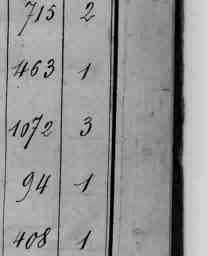 715 2
463 1
1072 3
94 1
408 1